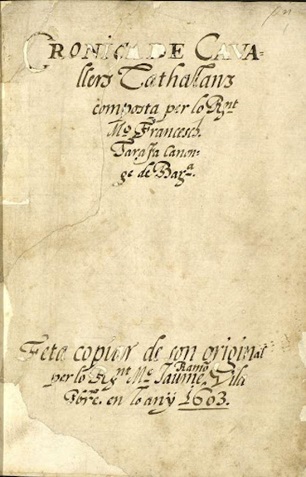 CRONICA DE CAVA-
llers Cathalans
composta per lo Rnt
Mo. Francesch
Tarafa Canon-
ge de Bara.
Feta copiar de son original
per lo Rnt Mo. Jaume Ramo Vila
Pbre. en lo any 1603.